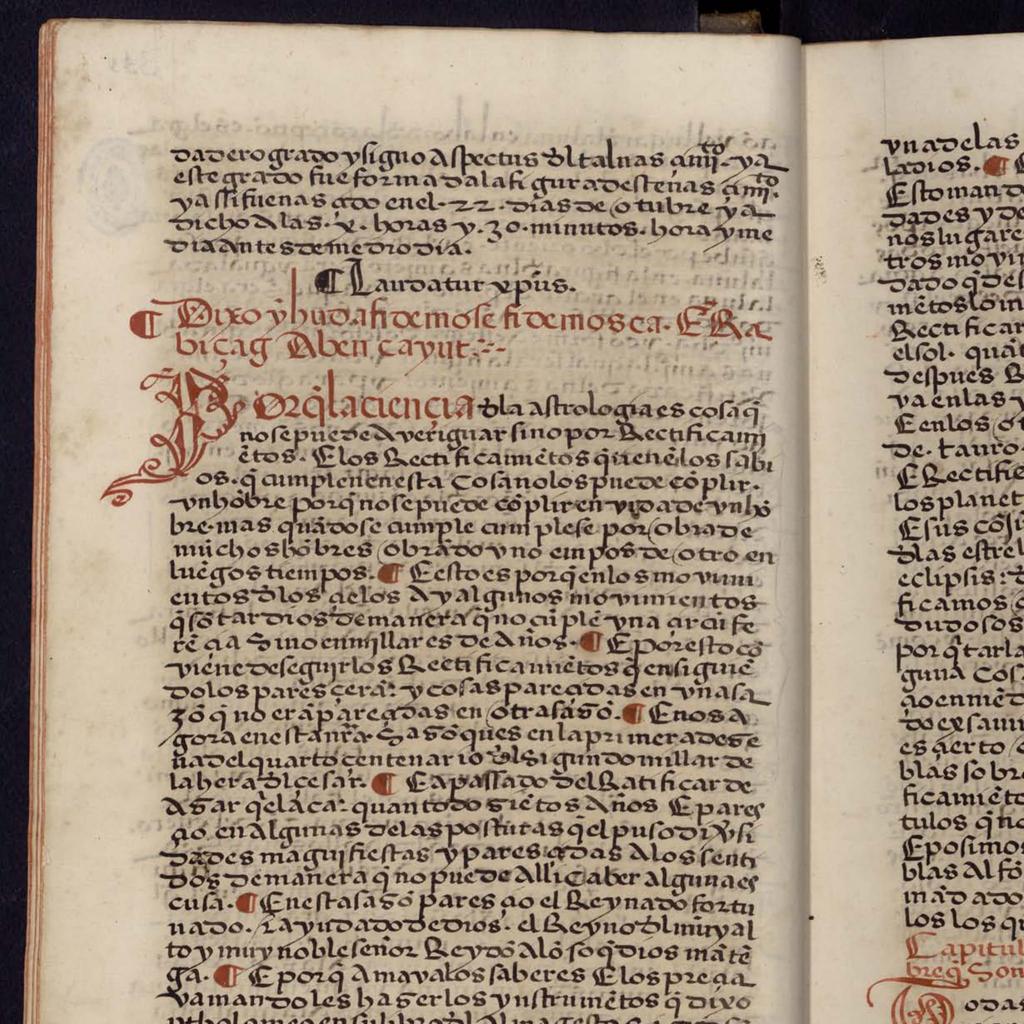 dadero grado y signo Aspectus dl talnas
este grado fue formada la figura destenas
y assi fuenas qdo en el .22. dias de otubre ya
dicho A las .x. horas y .30. minutos. hora y me
dia Antes de medio dia.
¶ Laudatur xpūs.
¶ Dixo yhuda fi de mose fi de mosca. E Ra
biçag Aben çayut
Por q̄ la ciençia dla astrologia es cosa q̄
no se puede Averiguar sino por Rectificami
ētos. E los Rectificamiētos q̄ uenē los sabi
os. q̄ cumplen en esta Cosa nolos puede cōplir.
vn hōbre porq̄ no se puede cōplir en vida de vn hō
bre. mas quādo se cumple cumplese por obra de
muchos hōbres obrādo vno empos de otro en
luēgos tiempos. ¶ E esto es porq̄ en los movimi
entos dlos çielos A y algunos movimientos
q̄ sō tardios de manera q̄ no cūple vna çircūfe
rēçia Sino en millares de Años. ¶ E por esto cō
viene de seguir los Rectificamiētos q̄ en siguiē
dolos paresçerā: y cosas pareçidas en vna sa
zō q̄ no erā pareçidas en otra sazō. ¶ E nos A
gora en esta nr̄a Sazō q̄ es en la primera deze
na del quarto centenario dl sigundo millar de
la hera dl çesar. ¶ E a passado del Ratificar de
Azar q̄el aca: quanto doziētos Años E pares
çio en Algunas de las posturas q̄ el puso diṽsi
dades magnifiestas y paresçidas A los senti
dos de manera q̄ no puede Alli Caber alguna es
cusa. ¶ E en esta sazō paresçio el Reynado fortu
nado. ayudado de dios. el Reyno dl muy al
to y muy noble señor Rey dō Alōso q̄ dios mātē
ga. ¶ E por q̄ Amava los saberes E los preçia
va mandoles hazer los ynstrumētos q̄ dixo
ptholomeo en su libro dl Almagesto
vna de las
la dios. ¶
Esto mand
dades y de
nos lugare
tros movi
dado q̄ des
mētos lo
Rectificar
el sol. quā
despues
va en las
E en los
de. tauro
E Rectifie
los planet
E sus cōju
dlas estrel
eclipsis:
ficamos
dudosos
por q̄ tarla
guna Cos
çio enmēd
do
es çierto
blas sobre
ficamiēto
tulos q̄ no
E posimos
blas Al fō
mādado
los los qu
Capitul
breq̄ Son
odas